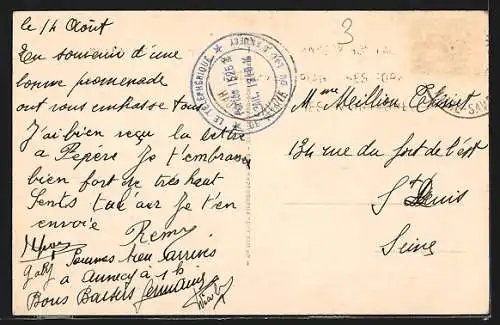 le 14 Août
En souvenir d'une
bonne promenade
on vous embrasse tous
J'ai bien reçu la lettre
à Pépère Je t'embrasse
bien fort de très haut
Sents tu l'air Je t'en
envoie
Remy
Sommes bien arrivés
à Annecy à 1 h
Bons Baisers Germaine
LE TÉLÉPHÉRIQUE
3
Mme Meillion
134 rue du fort de l'est
St Denis
Seine